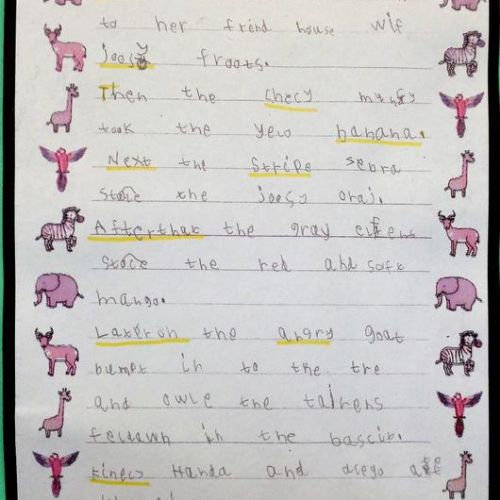 to her frend house wif
joosy froots.
Then the checy mungy
took the yelo banana.
Next the stripe sebra
stole the joosy oraj.
Afterthat the gray elfent
stole the red and soft
mango.
Lateron the angry goat
bumpt in to the tre
and owle the tajrens
feldawn in the bascit.
Finely Handa and diego ate